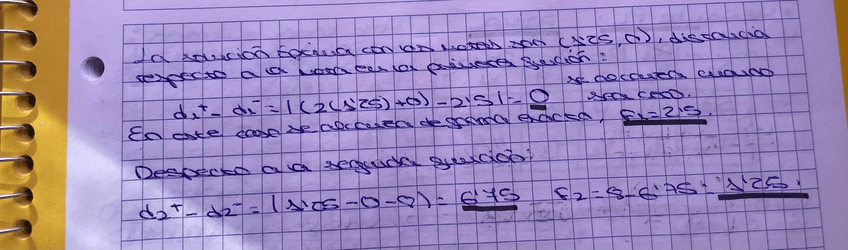 La solución óptima con los metas son (1'25, 0), distancia
respecto a la meta en la primera función:
d₁⁺ - d₁⁻ = |(2(1'25)+0) - 2'5| = 0 se alcanza cuando sea cero.
En este caso se alcanza de forma exacta, f₁ = 2'5
Respecto a la segunda función:
d₂⁺ - d₂⁻ = (1'25 - 0 - 8) = 6'75 f₂ = 8 - 6'75 = 1'25.